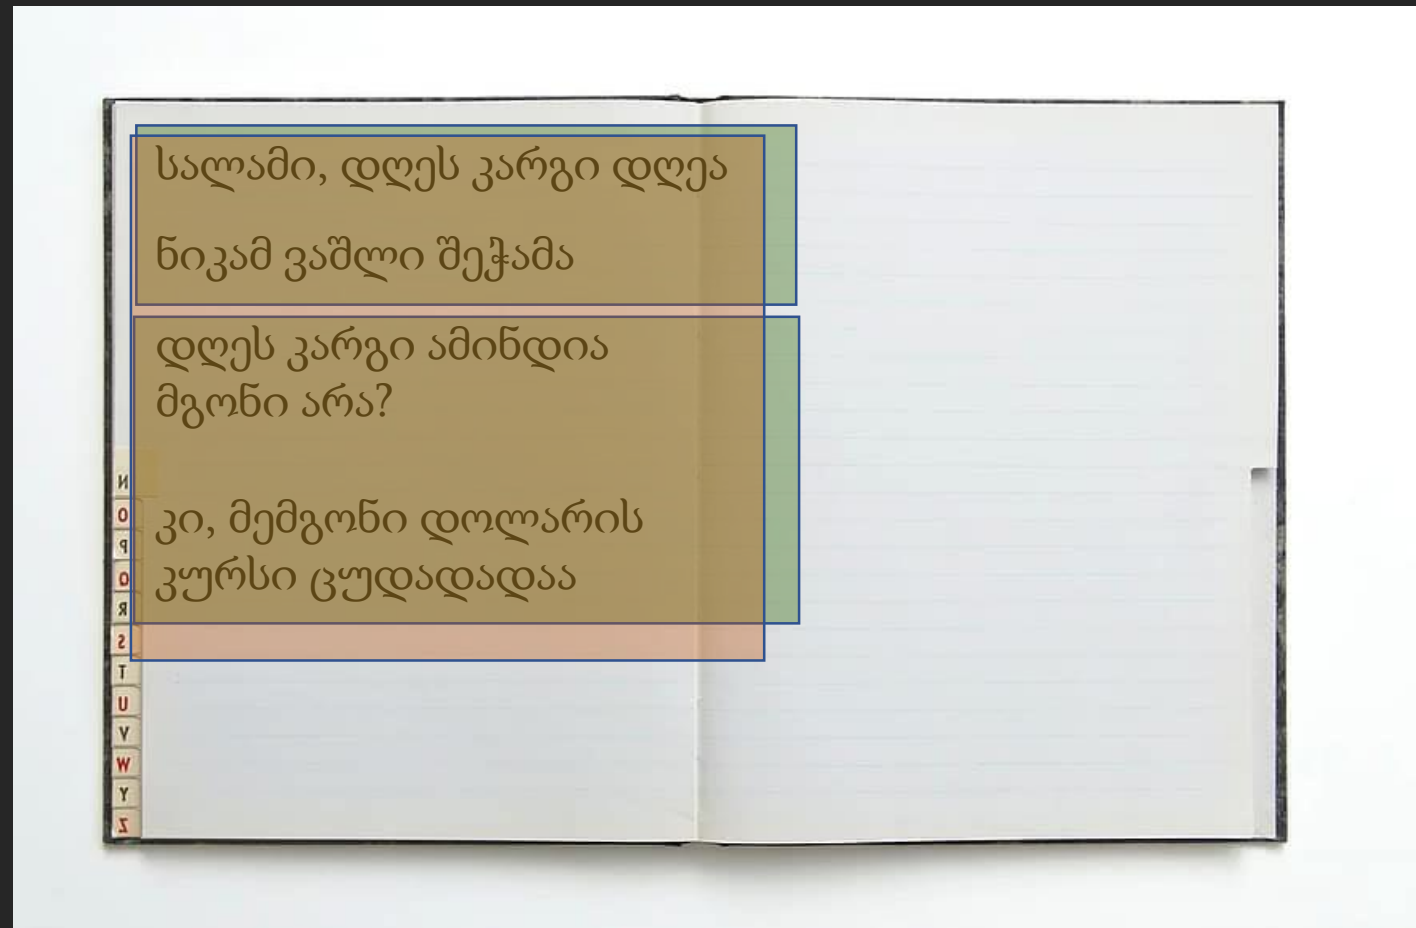 სალამი, დღეს კარგი დღეა
ნიკამ ვაშლი შეჭამა
დღეს კარგი ამინდია
მგონი არა?
კი, მემგონი დოლარის
კურსი ცუდადადაა
N
O
P
Q
R
S
T
U
V
W
Y
Z